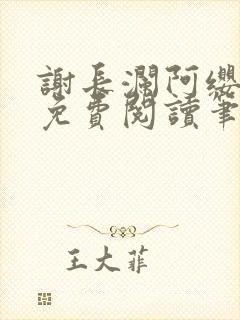 謝長瀾阿纓
免費閱讀筆
王大菲